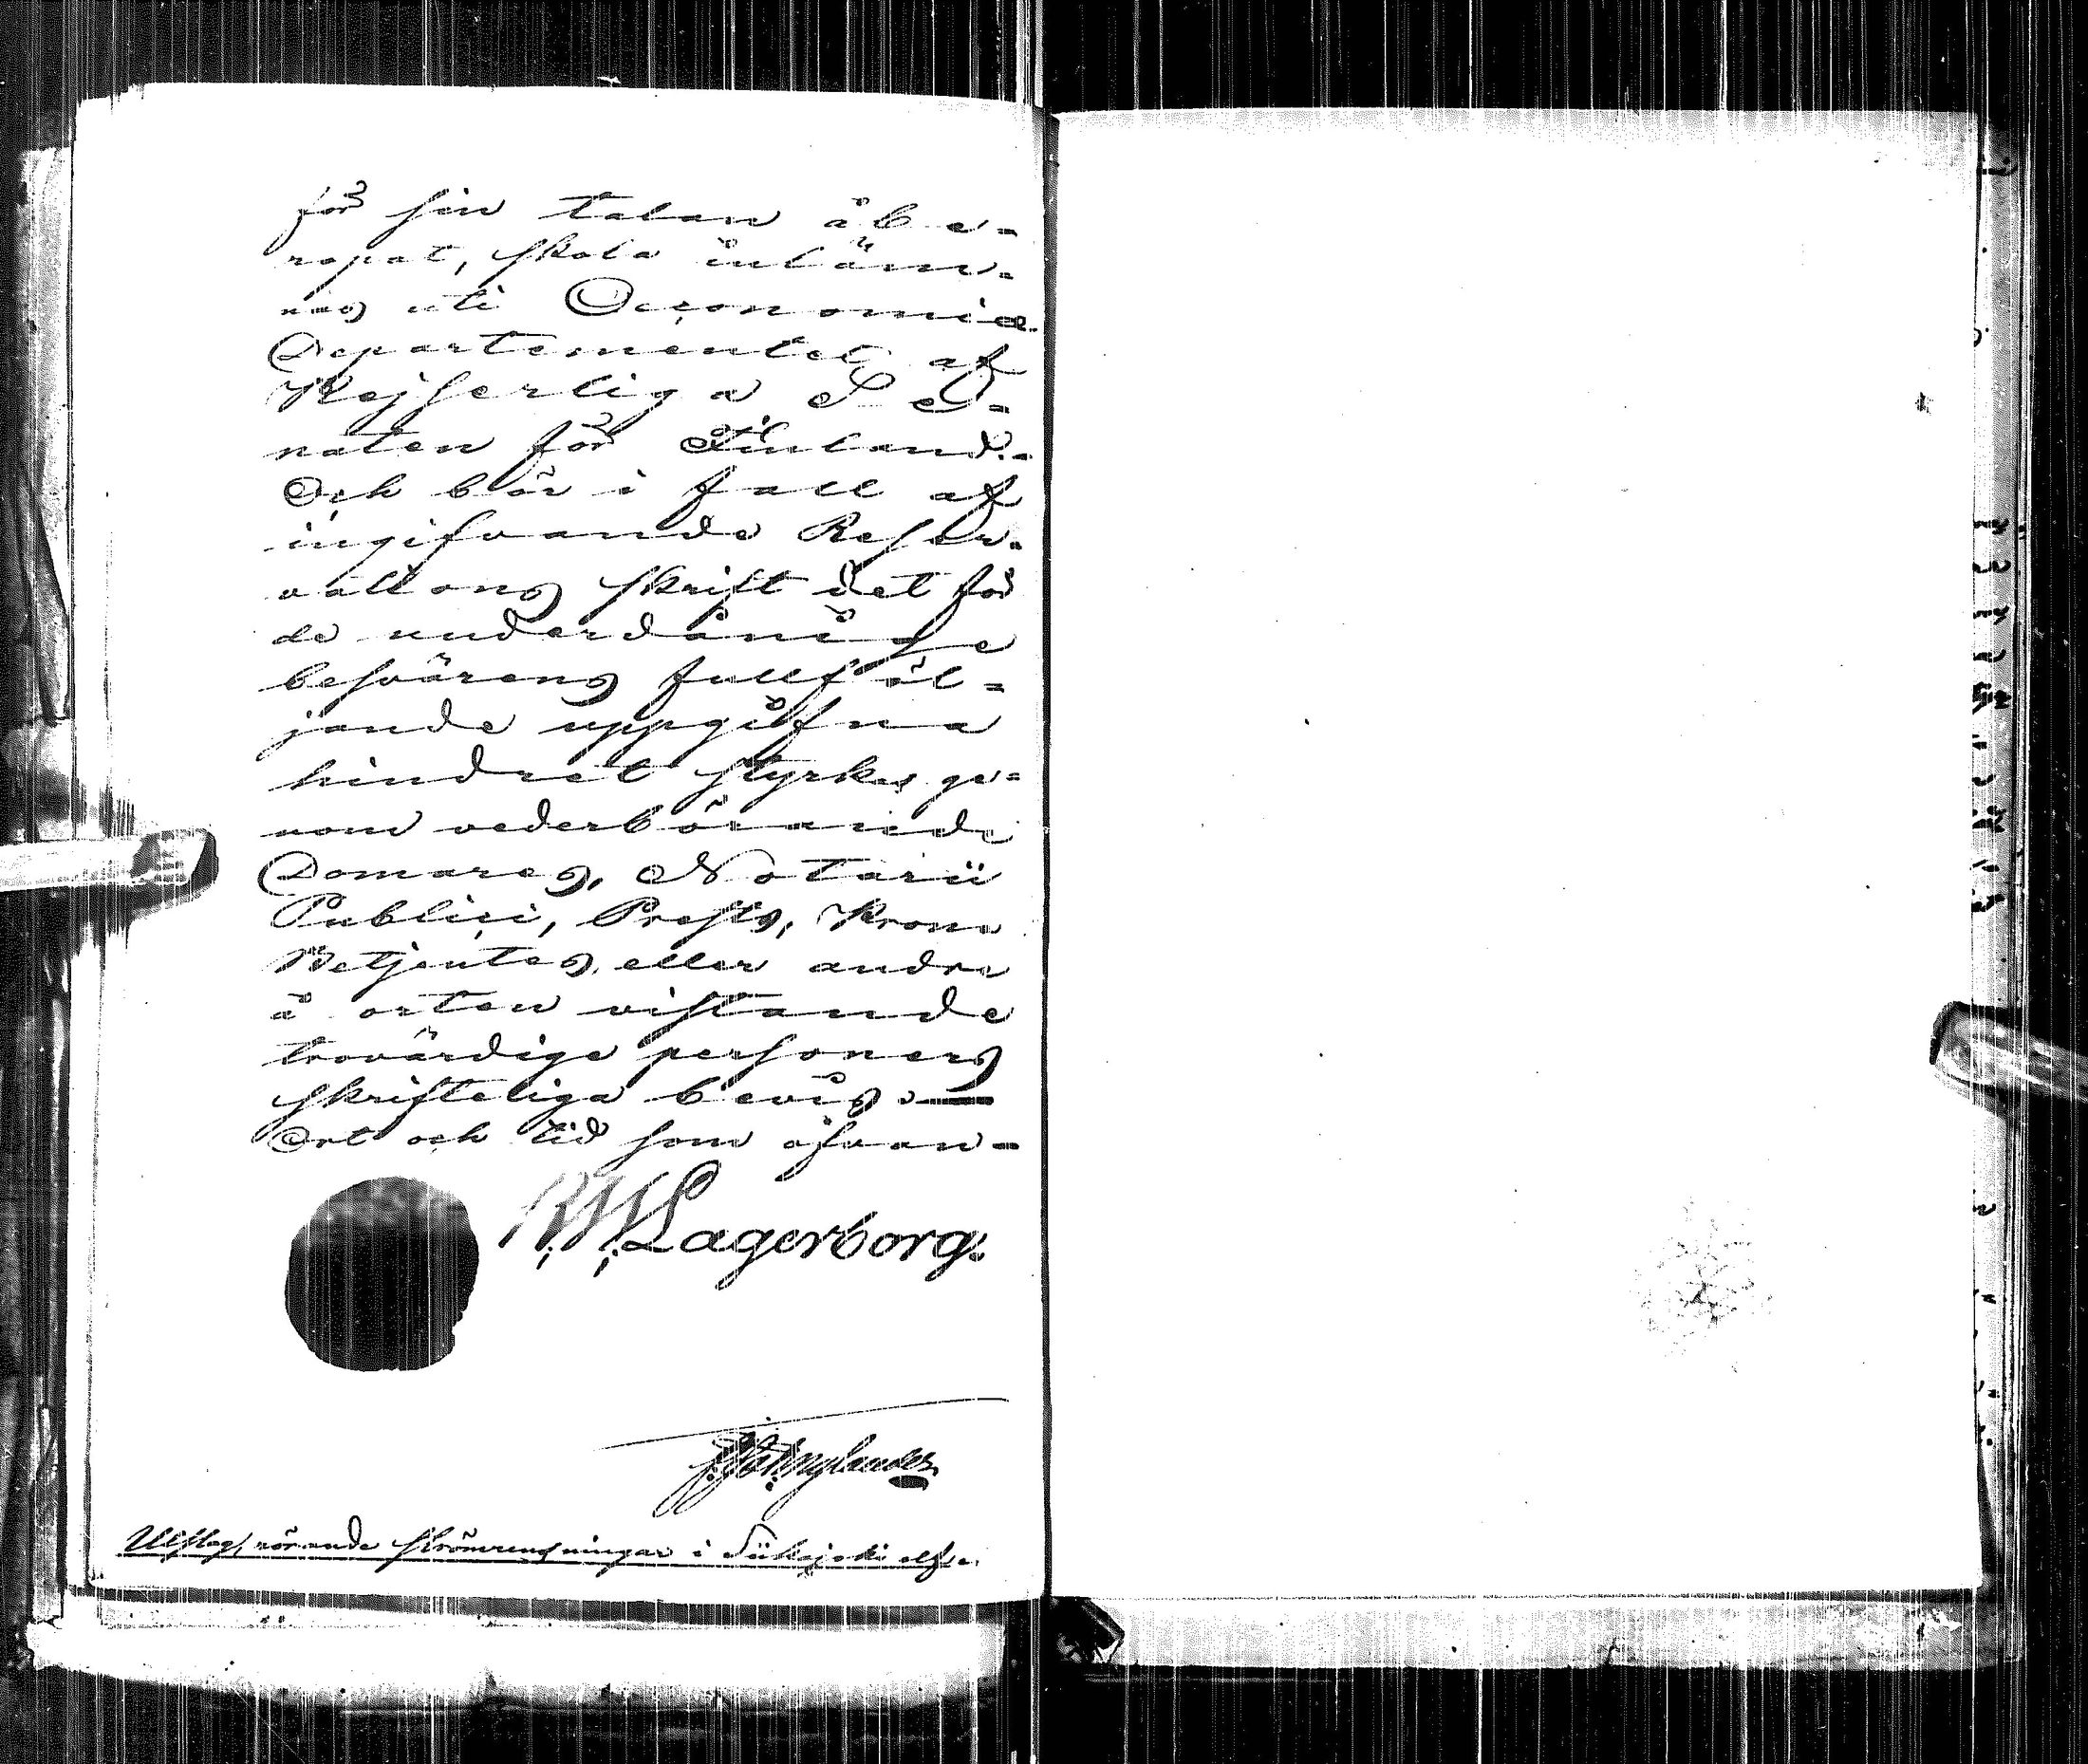 för sin talan åbe-
ropat, skola inläm-
nas uti Oeconomiæ
Departementet af
Kejserliga Se-
naten för Finland.-
Och bör i fall af
ingifvande Reser-
vations skrift det för
de underdånige
besvärens fullföl-
jande uppgifna
hindret styrkes ge-
nom vederbörande
Domares, Notarii
Publici, Prests, Krono
Betjentes, eller andre
å orten vistande
trovärdige personers
skrifteliga bevis.
Ort och tid som ofvan-
R. W. Lagerborg.
Nylander
Utslag, rörande strömrensningar i Siikajoki elf.